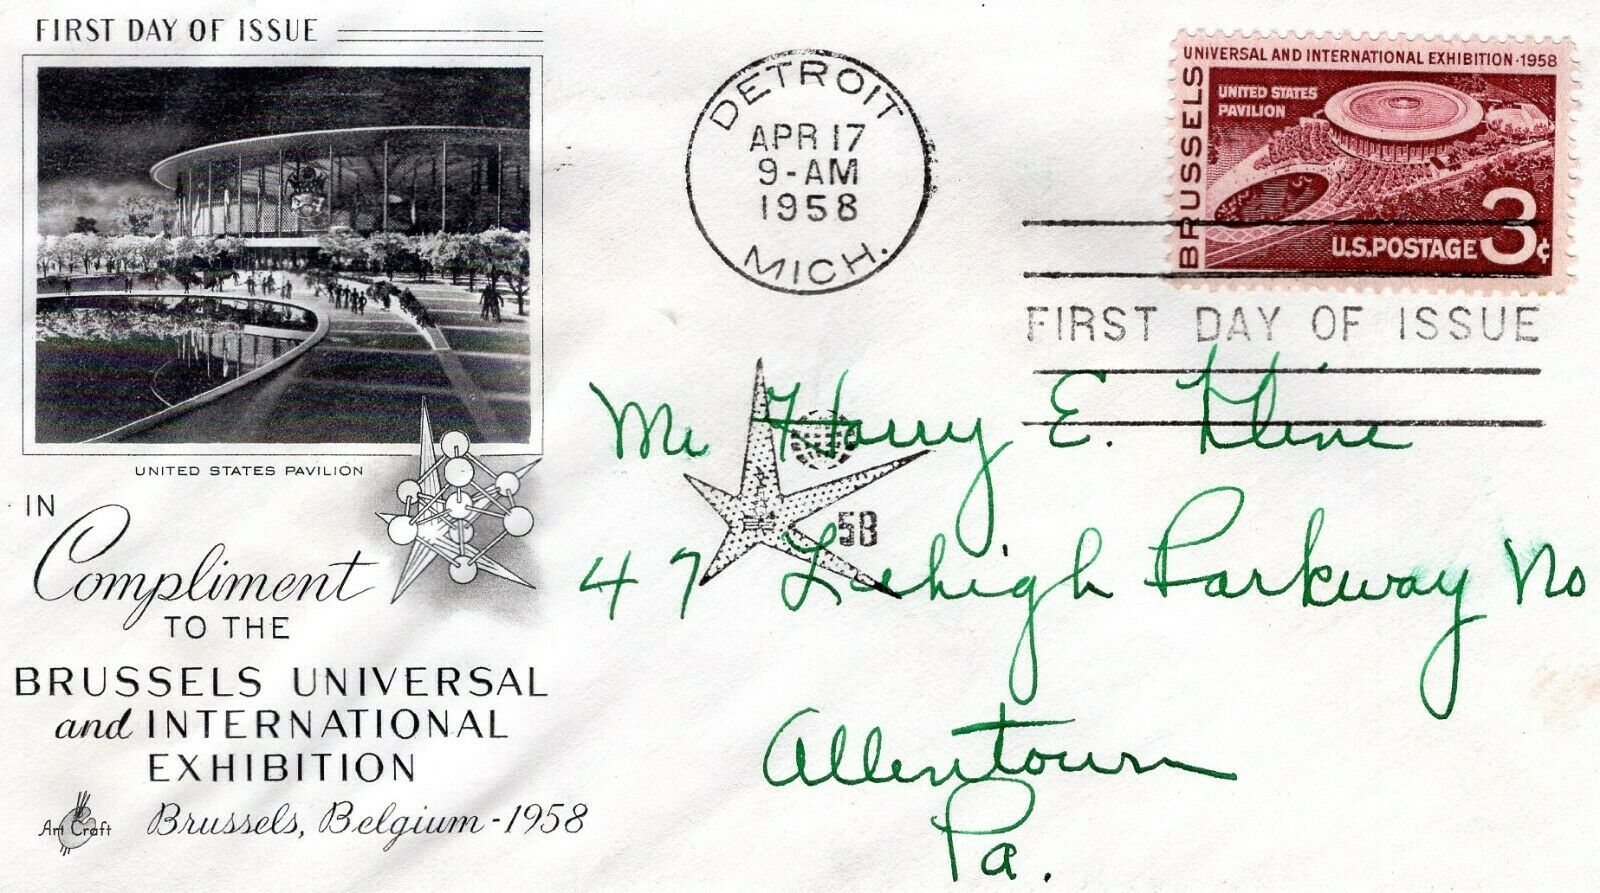 FIRST DAY OF ISSUE
UNITED STATES PAVILION
IN
Compliment
TO THE
BRUSSELS UNIVERSAL
and INTERNATIONAL
EXHIBITION
Brussels, Belgium - 1958
Art Craft
DETROIT
APR 17
9-AM
1958
MICH.
UNIVERSAL AND INTERNATIONAL EXHIBITION · 1958
BRUSSELS
UNITED STATES
PAVILION
U.S. POSTAGE 3¢
FIRST DAY OF ISSUE
58
Mr Harry E. Kline
47 Lehigh Parkway No
Allentown
Pa.